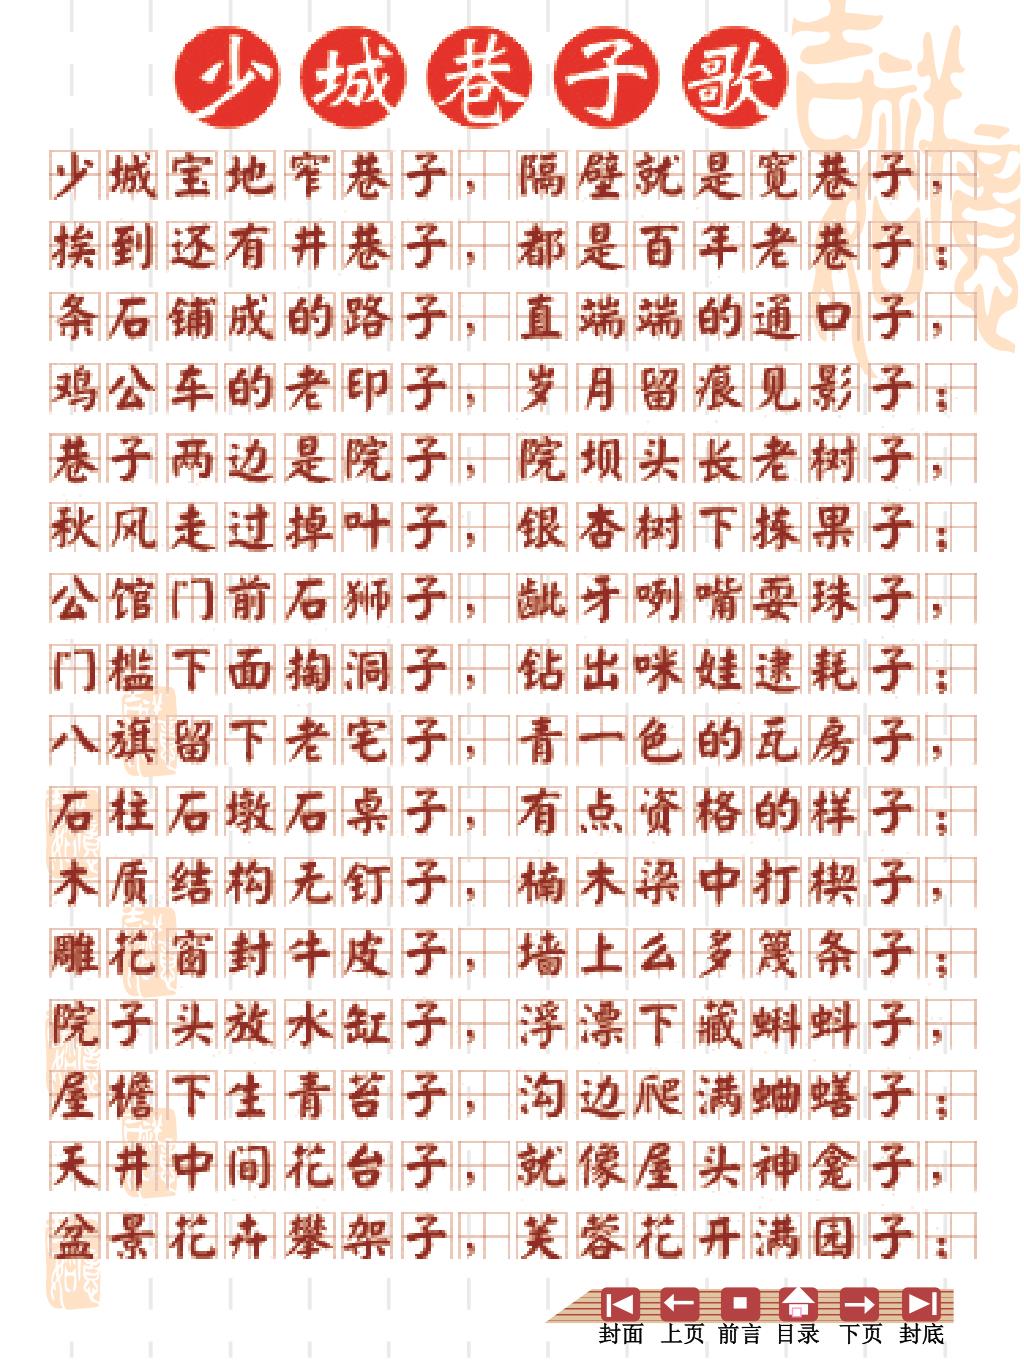 少城巷子歌
少城宝地窄巷子，隔壁就是宽巷子，
挨到还有井巷子，都是百年老巷子；
条石铺成的路子，直端端的通口子，
鸡公车的老印子，岁月留痕见影子；
巷子两边是院子，院坝头长老树子，
秋风走过掉叶子，银杏树下拣果子；
公馆门前石狮子，龇牙咧嘴耍珠子，
门槛下面掏洞子，钻出咪娃逮耗子；
八旗留下老宅子，青一色的瓦房子，
石柱石墩石桌子，有点资格的样子；
木质结构无钉子，楠木梁中打楔子，
雕花窗封牛皮子，墙上么多篾条子；
院子头放水缸子，浮漂下藏蝌蚪子，
屋檐下生青苔子，沟边爬满蛐蟮子；
天井中间花台子，就像屋头神龛子，
盆景花卉攀架子，芙蓉花开满园子；
封面 上页 前言 目录 下页 封底